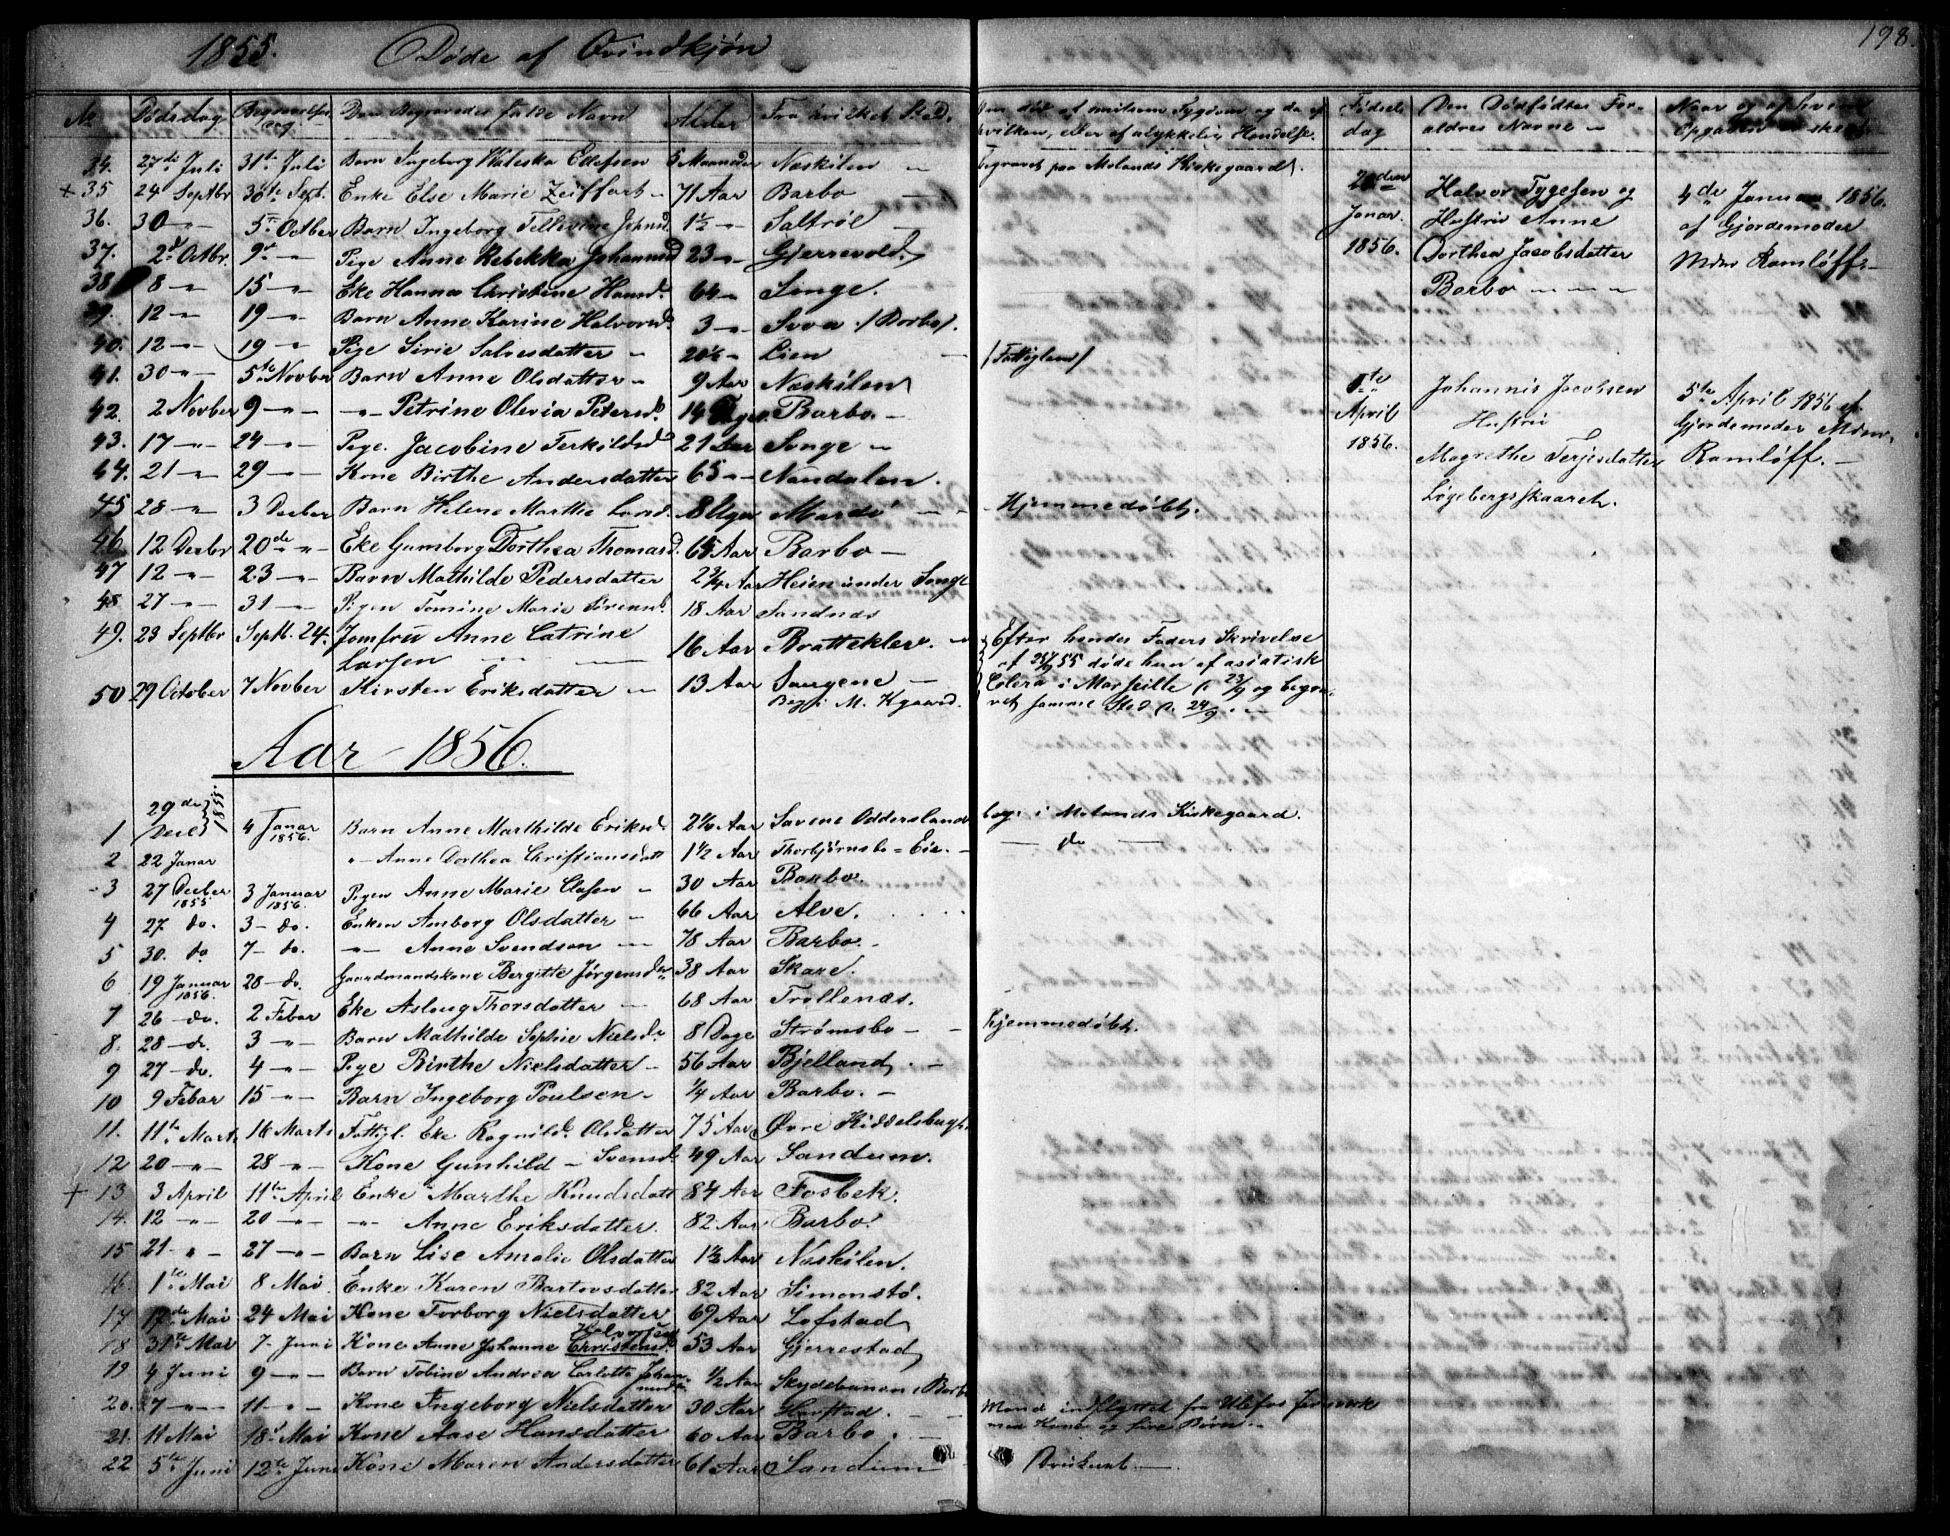 1855. Døde af Qvindkjøn
198.
No Dødsdag Begravelses dag Den Begravedes fulde Navn Alder Fra hvilket Sted.
34. 27de Juli 31te Juli Barn Ingeborg Waleska Ellefsen 5 Maaneder Næskilen
+ 35. 24 Septbr 30te Sept. Enke Else Marie Zeiffart 71 Aar Barbo
36. 30 — 5te Octber Barn Ingeborg Johnsd 1½ — Saltrøe
37. 2d Octbr. 9de — Pige Anne Rebekka Johannesd 23 — Gjerrevold.
38 8 — 15 — Eke Hanna Christine Hansd. 64 — Songe.
39. 12 — 19 — Barn Anne Karine Halvorsd. 3 — Svoa /Barbo/.
40. 12 — 19 — Pige Sirie Salvesdatter 20½ — Lien
41. 30 — 5te Novber Barn Anne Olsdatter 9 Aar Næskilen
42. 2 Novber 9 — — Petrine Olevia Petersd. 14 Dage. Barbo.
43. 17 — 24 — Pige. Jacobine Terkildsd 21 Aar Songe
44. 21 — 29 — Kone Birthe Andersdatter 65 — Nændalen.
45 28 — 3 Decber Barn Helene Marthe Larsd. 8 Uger Mardø
46. 12 Decbr 20de — Eke Gunborg Dorthea Thomasd. 65 Aar Barbo
47 12 — 23 — Barn Mathilde Pedersdatter 2¾ Aar Heien under Songe
48 27 — 31 — Pigen Tomine Marie Sørensd. 18 Aar Sandnæs
49. 23 Septbr Septb. 24. Jomfru Anne Catrine 16 Aar Bratteklev.
Larsen
50 29 October 7 Novber Kirsten Eriksdatter 13 Aar Saugene
Beg. i M. Kgaard.
Aar 1856.
1 29de Decb 1855 4 Januar 1856. Barn Anne Marthilde Eriksd. 2½ Aar Savene Oddersland
2 22 Januar — Anne Dorthea Christiansdatt 1½ Aar Thorbjørnsbo = Eie.
3 27 Decber 1855 3 Januar 1856. Pigen Anne Marie Clasen 30 Aar Barbo.
4 27. do. 3 — do. Enken Amborg Olsdatter 66 Aar Alve.
5 30. do 7 — do. — Anne Svendsen 78 Aar Barbo.
6 19 Januar 1856. 28 — do. Gaardmandskone Bergitte Jørgensdr 38 Aar Skare.
7 26 — do. 2 Febar Eke Aslaug Thorsdatter 68 Aar Trollenæs.
8. 28 — do. 3 — Barn Mathilde Sophie Nielsdr 8 Dage Strømsbo
9 27 — do. 4 — Pige Birthe Nielsdatter 56 Aar Bjelland.
10 9 Febar 15 — Barn Ingeborg Poulsen ¼ Aar Barbo.
11. 11te Marts 16 Marts Fattigl. Eke Ragnild Olsdatter 75 Aar Øvre Kiddelsbugt.
12 20 — 28 — Kone Gunhild Svensd. 49 Aar Sandum.
+ 13 3 April 11te April Enke Marthe Knudsdatt 84 Aar Fosbek.
14. 12 — 20 — — Anne Eriksdatter. 82 Aar Barbo.
15 21 — 27 — Barn Lise Amalie Olsdatter 1½ Aar Næskilen.
16. 1te Mai 8 Mai. Enke Karen Bartovsdatter 82 Aar Simonstø.
17 17de Mai 24 Mai Kone Torborg Nielsdatter 69 Aar Lofstad
18 31te Mai 7 Juni Kone Anne Johanne Christensd. 53 Aar Gjerrestad
19 4 Juni 9 — Barn Tobine Andrea Carlotte Johan- ½ Aar Skydebanen i Barbo
20. 7 — 11 — Kone Ingeborg Nielsdatter 30 Aar Harstad.
21. 11 Mai 18d Mai Kone Aase Hansdatter 60 Aar Barbo.
22 5te Juni 12te Juni Kone Maren Andersdatter 61 Aar Sandum
hvilken, eller af ulykkelig Hændelse.
Fødsels dag
Den Dødfødtes Forældres Navne
Begravet paa Molands Kirkegaard.
/Fattiglem/
Hjemmedøbt.
Efter hendes Faders Skrivelse
af 25/9 55 døde hun af asiatisk
Colera i Marseille d. 23/9 og begra-
vet samme Sted d. 24/9.
begr. i Molands Kirkegaard.
— do —
hjemmedøbt.
Mand indflyttet fra Ulefos Jernværk
med Kone og fire Børn.
Januar. 1856.
Halvor Tygesen og
Hustru Anne
Dorthea Jacobsdatter
Barbo
4de Januar 1856.
af Gjordemoder
Mdme Ramløff
5te April 1856.
Johannis Jacobsen
Hustru
Magrethe Terjesdatter
Løgebergsskaaret.
5te April 1856 af
Gjordemoder Mdme
Ramløff.